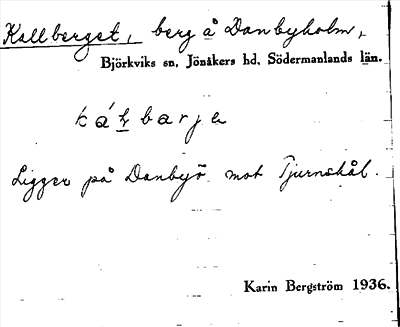 Kallberget, berg å Danbyholm,
Björkviks sn, Jönåkers hd, Södermanlands län.
Ligger på Danbyö mot Tjurnskål.
Karin Bergström 1936.